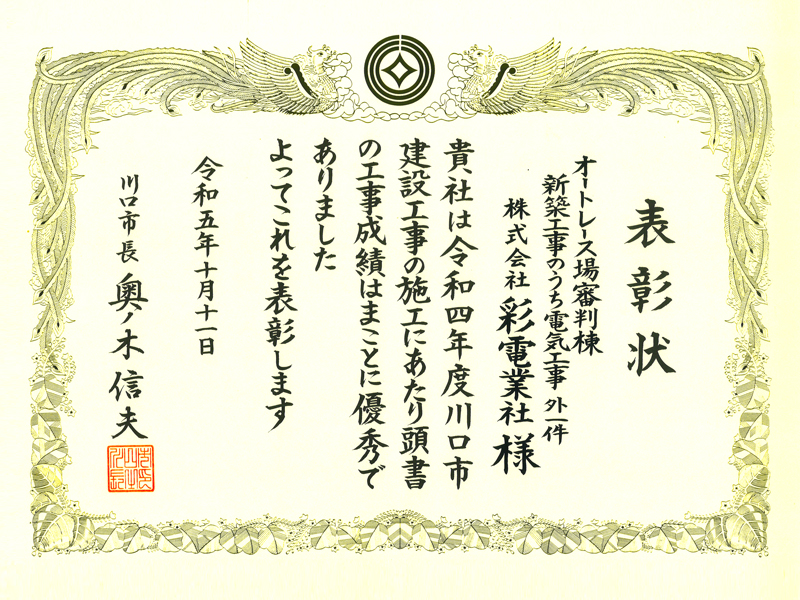 表彰状
オートレース場審判棟
新築工事のうち電気工事 外一件
株式会社 彩電業社 様
貴社は令和四年度川口市
建設工事の施工にあたり頭書
の工事成績はまことに優秀で
ありました
よってこれを表彰します
令和五年十月十一日
川口市長 奥ノ木信夫